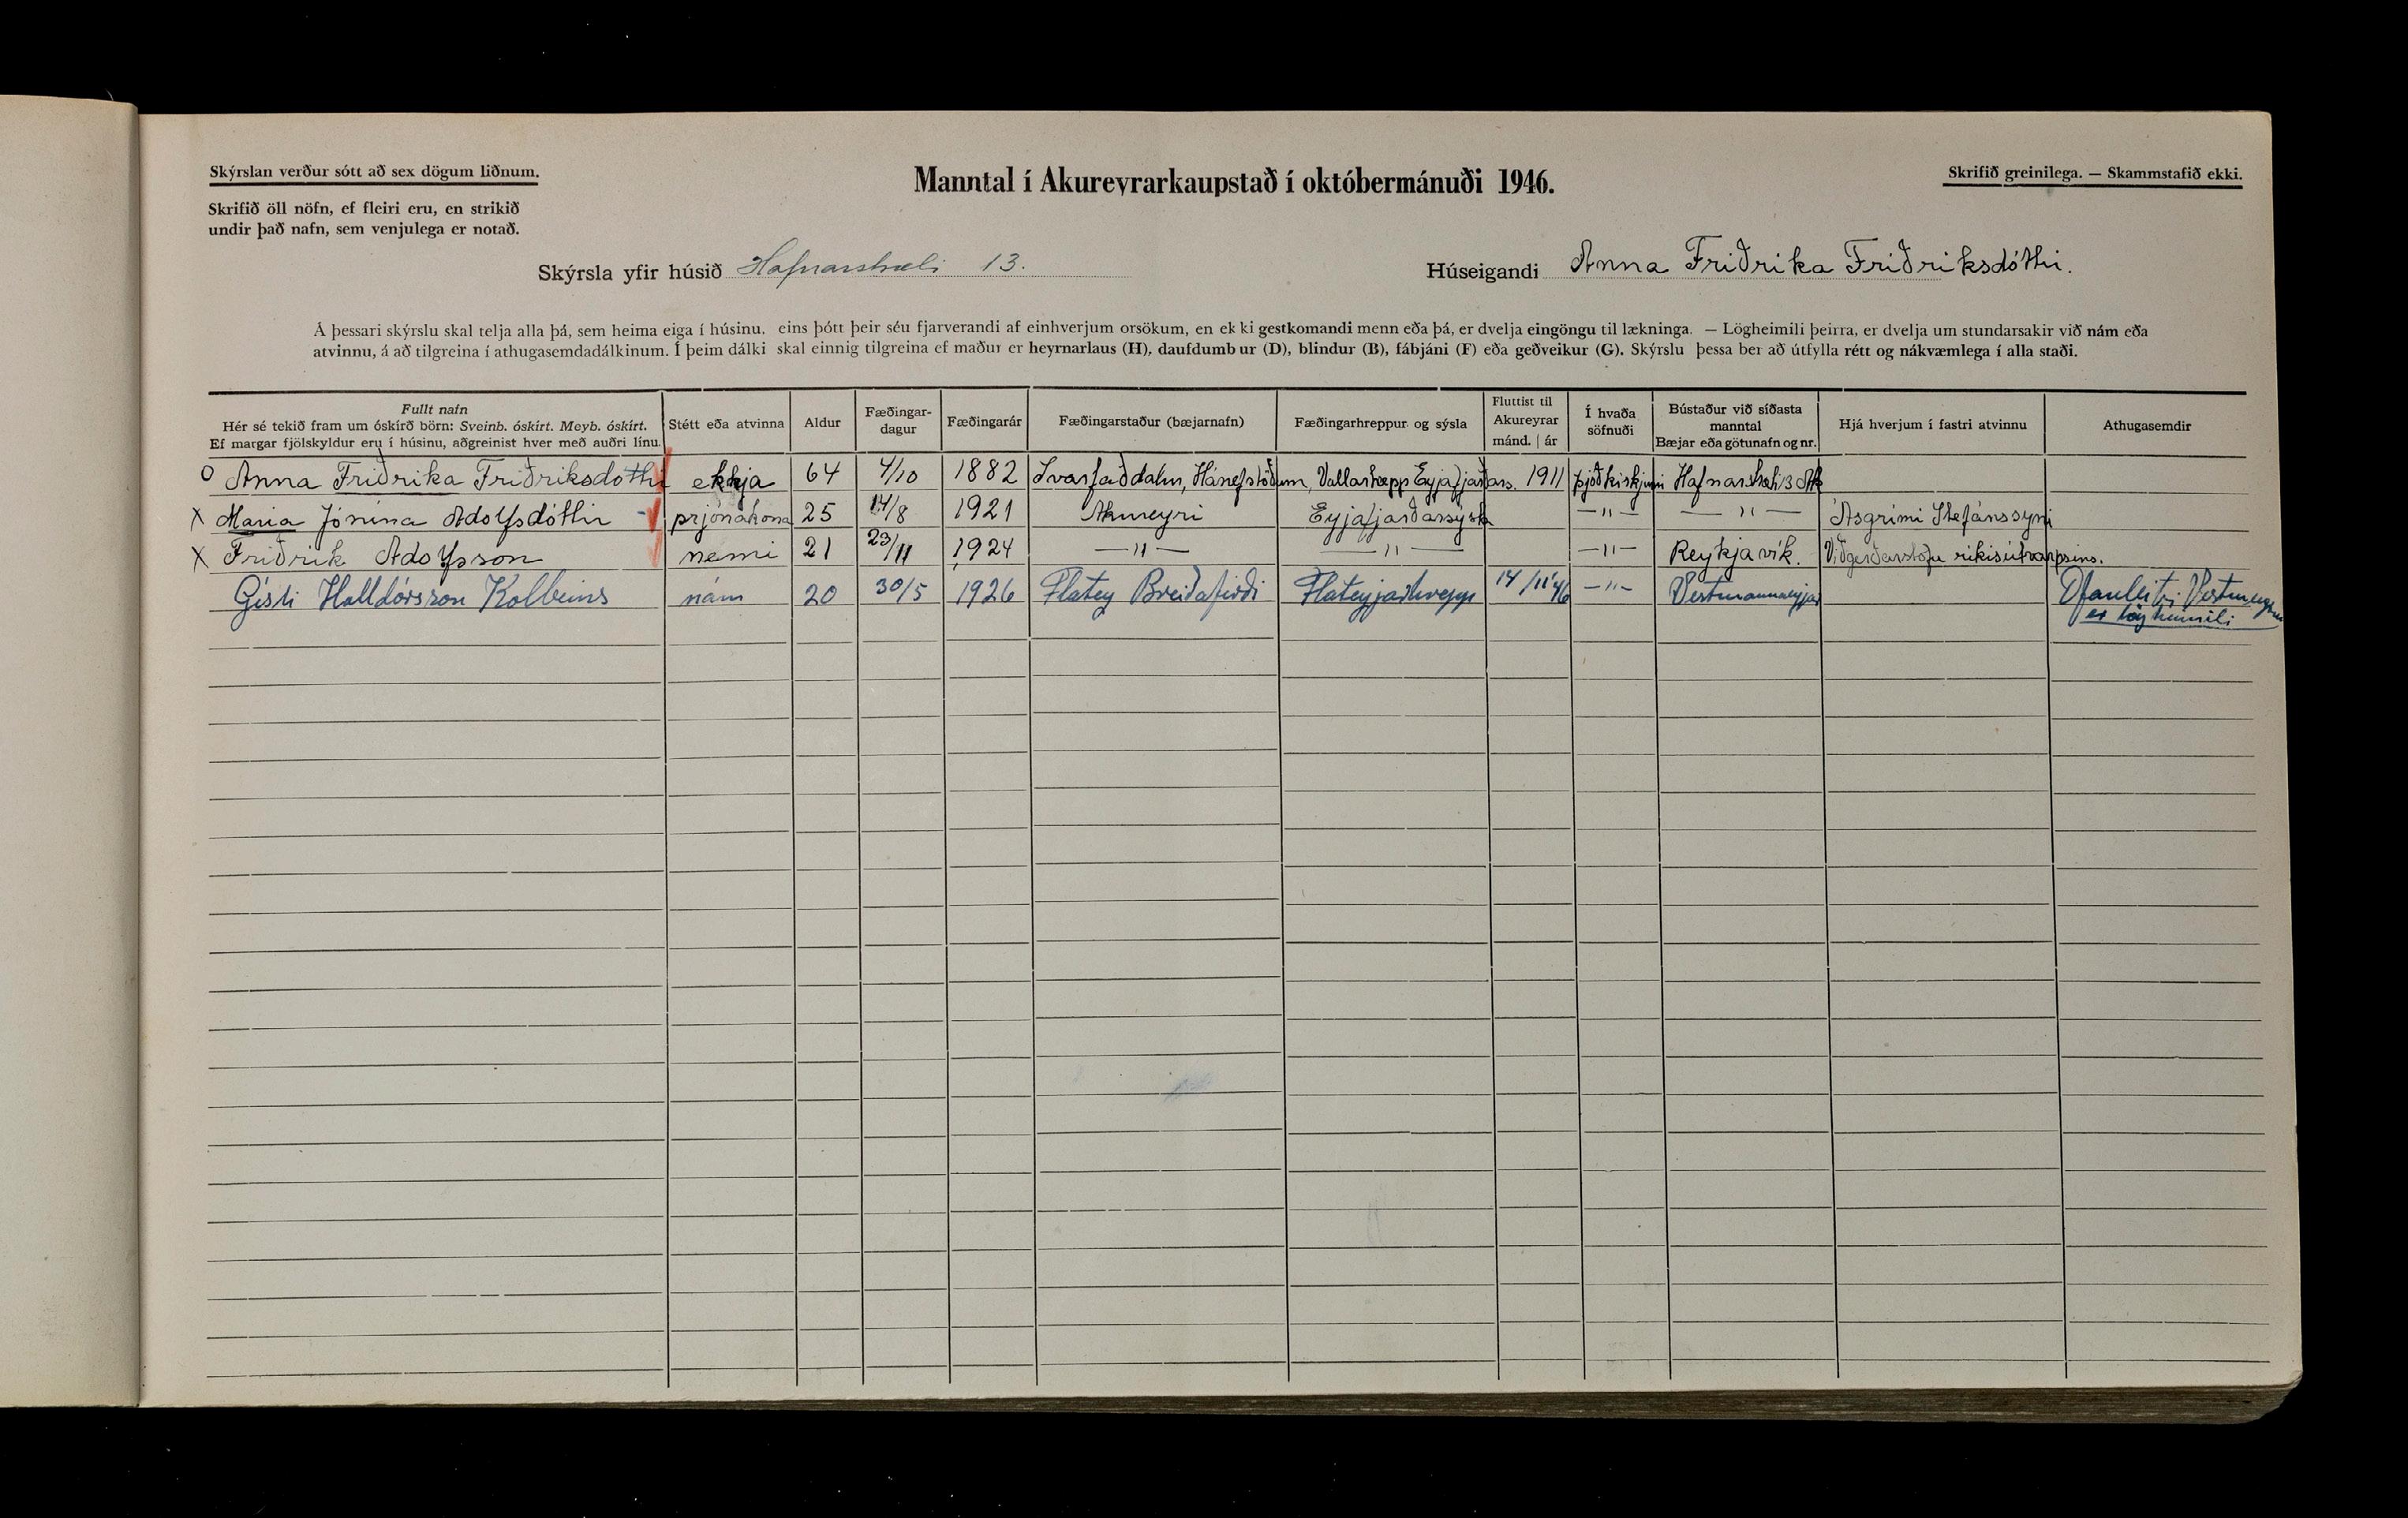 Skýrslan verður sótt að sex dögum liðnum.
Manntal í Akureyrarkaupstað í októbermánuði 1946.
Skrifið greinilega. — Skammstafið ekki.
Skrifið öll nöfn, ef fleiri eru, en strikið
undir það nafn, sem venjulega er notað.
Skýrsla yfir húsið Hafnarstræti 13.
Húseigandi Anna Friðrika Friðriksdóttir.
Á þessari skýrslu skal telja alla þá, sem heima eiga í húsinu, eins þótt þeir séu fjarverandi af einhverjum orsökum, en ekki gestkomandi menn eða þá, er dvelja eingöngu til lækninga. — Lögheimili þeirra, er dvelja um stundarsakir við nám eða
atvinnu, á að tilgreina í athugasemdadálkinum. Í þeim dálki skal einnig tilgreina ef maður er heyrnarlaus (H), daufdumbur (D), blindur (B), fábjáni (F) eða geðveikur (G). Skýrslu þessa ber að útfylla rétt og nákvæmlega í alla staði.
Fullt nafn
Hér sé tekið fram um óskírð börn: Sveinb. óskírt. Meyb. óskírt.
Ef margar fjölskyldur eru í húsinu, aðgreinist hver með auðri línu.
Stétt eða atvinna
Aldur
Fæðingar-
dagur
Fæðingarár
Fæðingarstaður (bæjarnafn)
Fæðingarhreppur og sýsla
Fluttist til
Akureyrar
mánd. | ár
Í hvaða
söfnuði
Bústaður við síðasta
manntal
Bæjar eða götunafn og nr.
Hjá hverjum í fastri atvinnu
Athugasemdir
o Anna Friðrika Friðriksdóttir ekkja 64 4/10 1882 Svarfaðdalur, Hánefstöðum, Vallarhrepp Eyjafjarðars. 1911 þjóðkirkjunni Hafnarstræti 13 Ak
x María Jónína Adolfsdóttir prjónakona 25 14/8 1921 Akureyri Eyjafjarðarsýsla —"— —"— Ásgrími Stefánssyni
x Friðrik Adolfsson nemi 21 23/11 1924 —"— —"— —"— Reykjavík. Viðgerðarstofu ríkisútvarpsins.
Gísli Halldórsson Kolbeins nám 20 30/5 1926 Flatey Breiðafirði Flateyjarhrepp 14/11'46 —"— Vestmannaeyjar Ofanleiti Vestmeyjum
er lögheimili